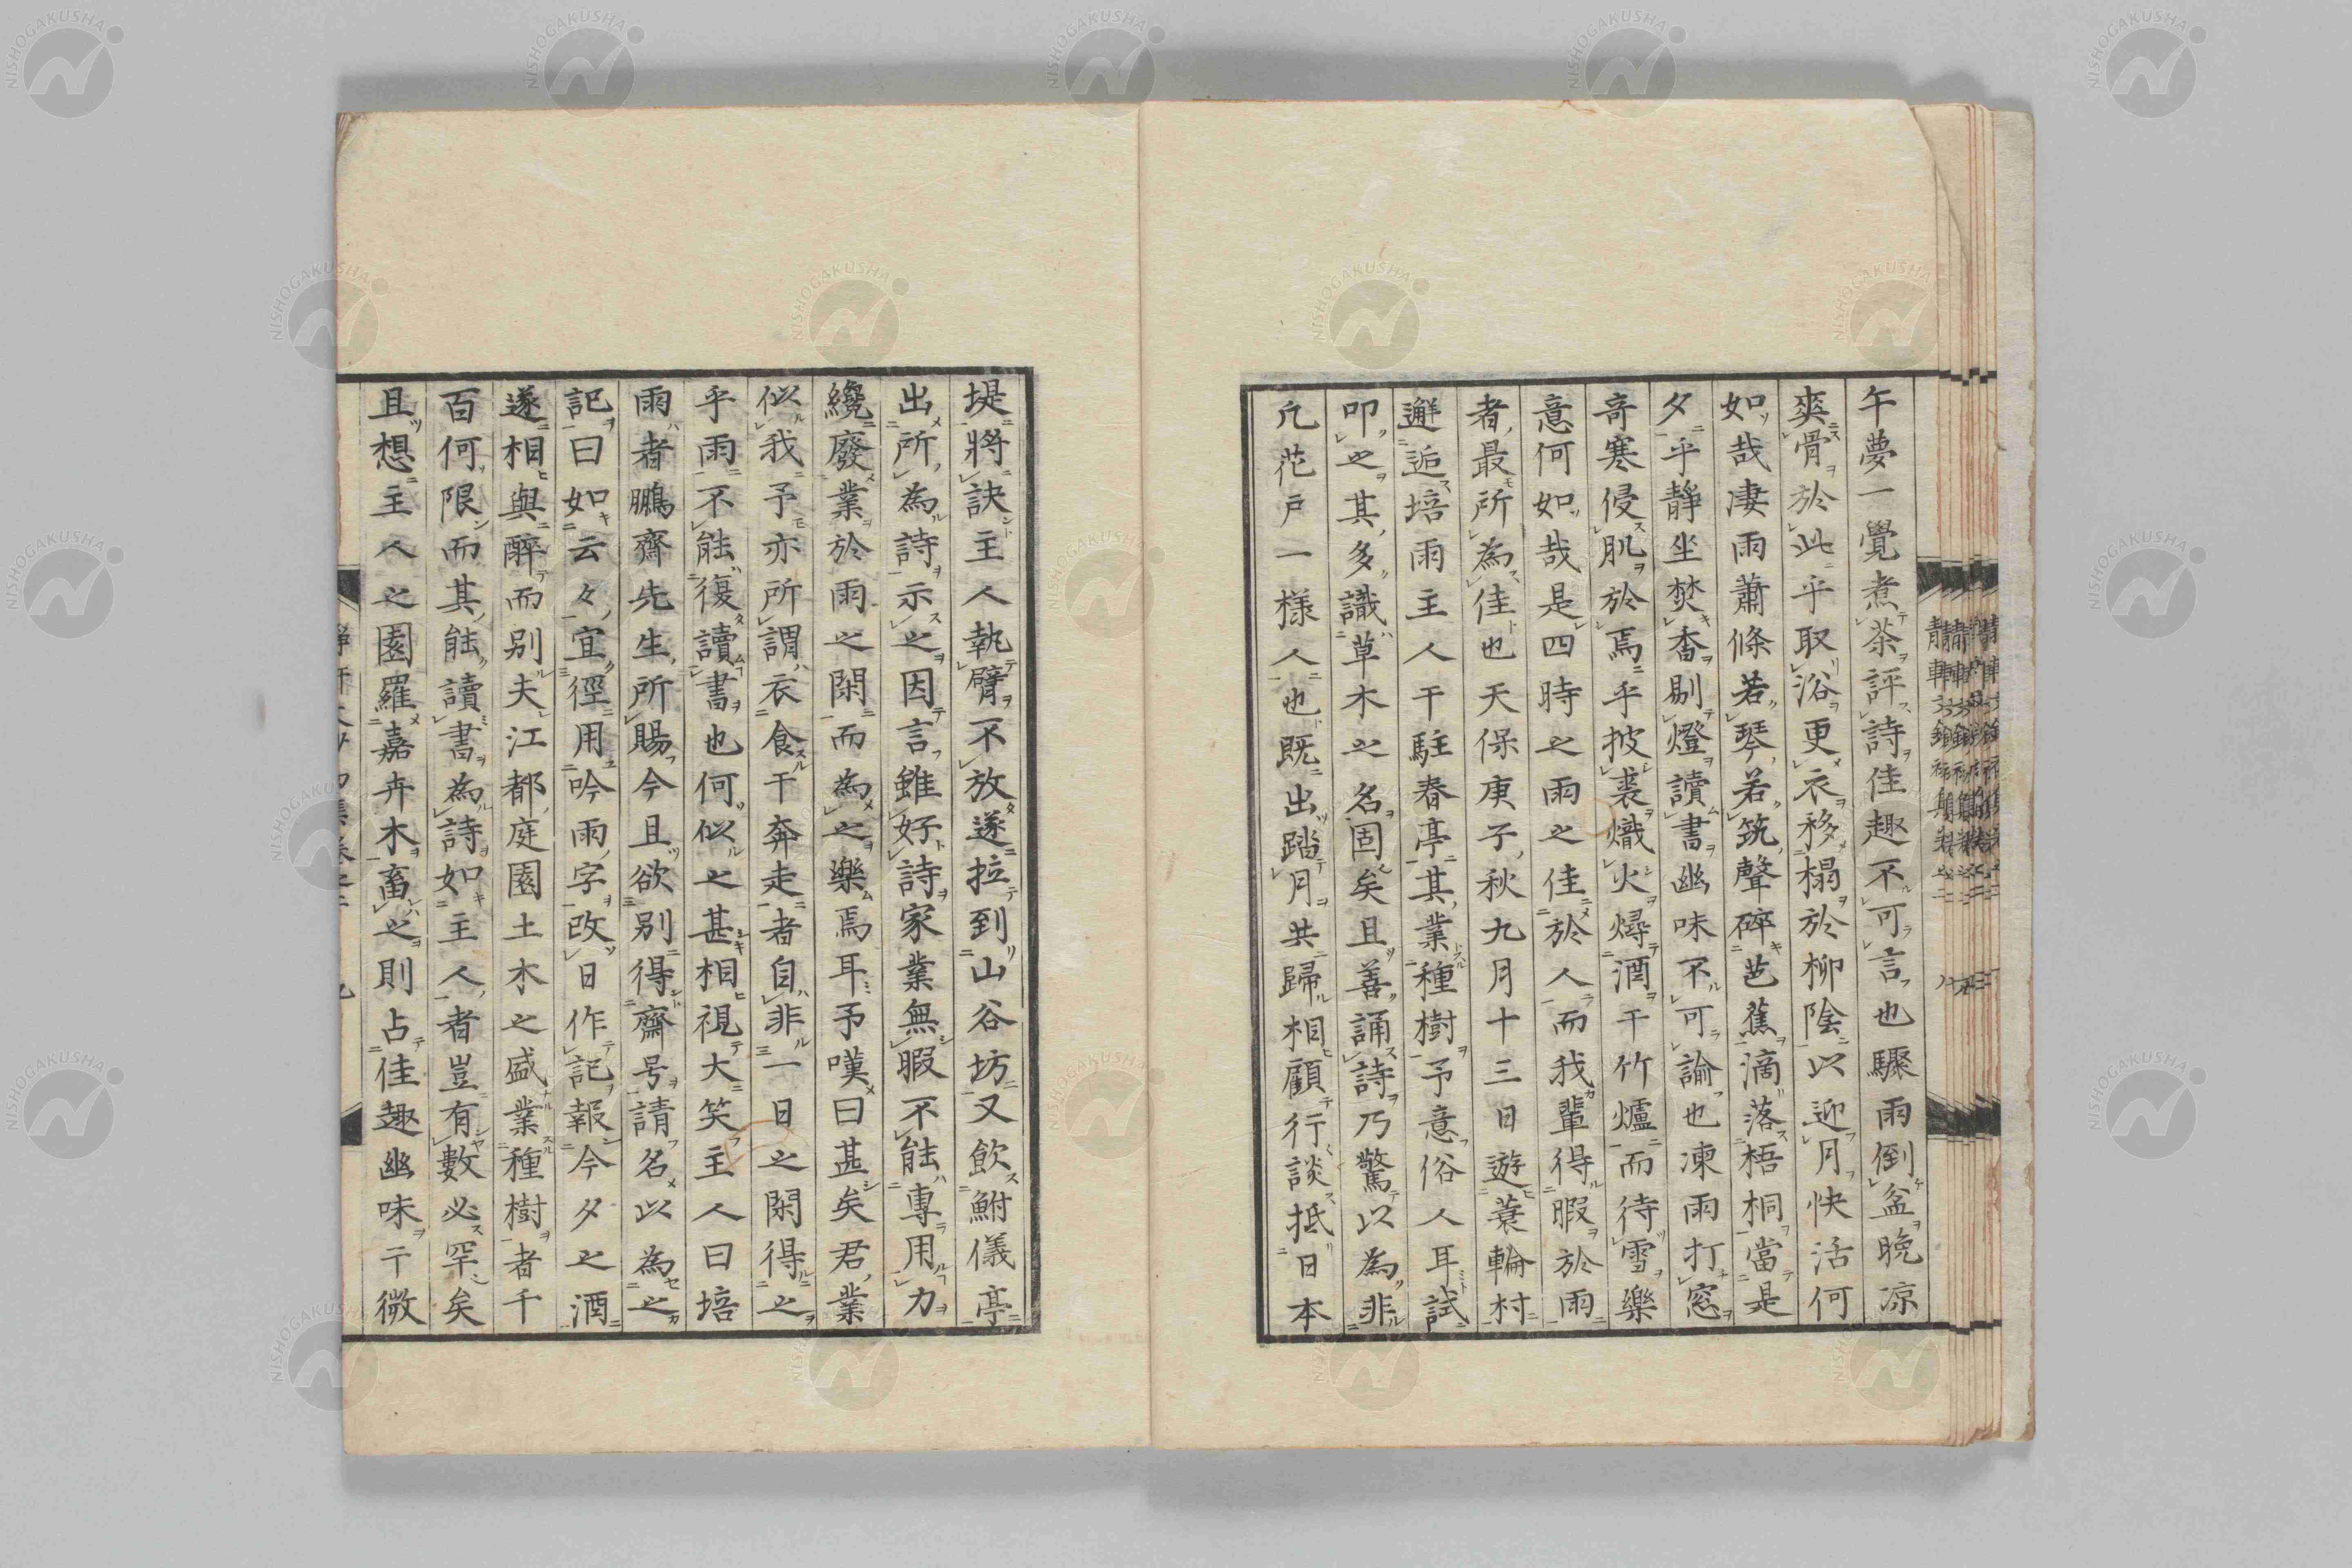 午夢一覺煮茶評詩佳趣不可言也驟雨倒盆晚凉
爽骨於此乎取浴更衣移榻於柳陰以迎月快活何
如哉凄雨蕭條若琴若筑聲碎芭蕉滴落梧桐當是
夕乎靜坐焚香剔燈讀書幽味不可論也凍雨打窓
竒寒侵肌於焉乎披裘熾火燖酒于竹爐而待雪樂
意何如哉是四時之雨之佳於人而我輩得暇於雨
者最所為佳也天保庚子秋九月十三日遊蓑輪村
邂逅培雨主人于駐春亭其業種樹予意俗人耳試
叩之其多識草木之名固矣且善誦詩乃驚以為非
凡花戶一樣人也既出踏月共歸相顧行談抵日本
堤將訣主人執臂不放遂拉到山谷坊又飲鮒儀亭
出所為詩示之因言雖好詩家業無暇不能專用力
纔廢業於雨之閑而為之樂焉耳予嘆曰甚矣君業
似我予亦所謂衣食于奔走者自非一日之閑得之
乎雨不能復讀書也何似之甚相視大笑主人曰培
雨者鵬齋先生所賜今且欲别得齋号請名以為之
記曰如云々宜徑用吟雨字改日作記報今夕之酒
遂相與醉而别夫江都庭園土木之盛業種樹者千
百何限而其能讀書為詩如主人者豈有數必罕矣
且想主人之園羅嘉卉木畜之則占佳趣幽味于微
NISHOGAKUSHA